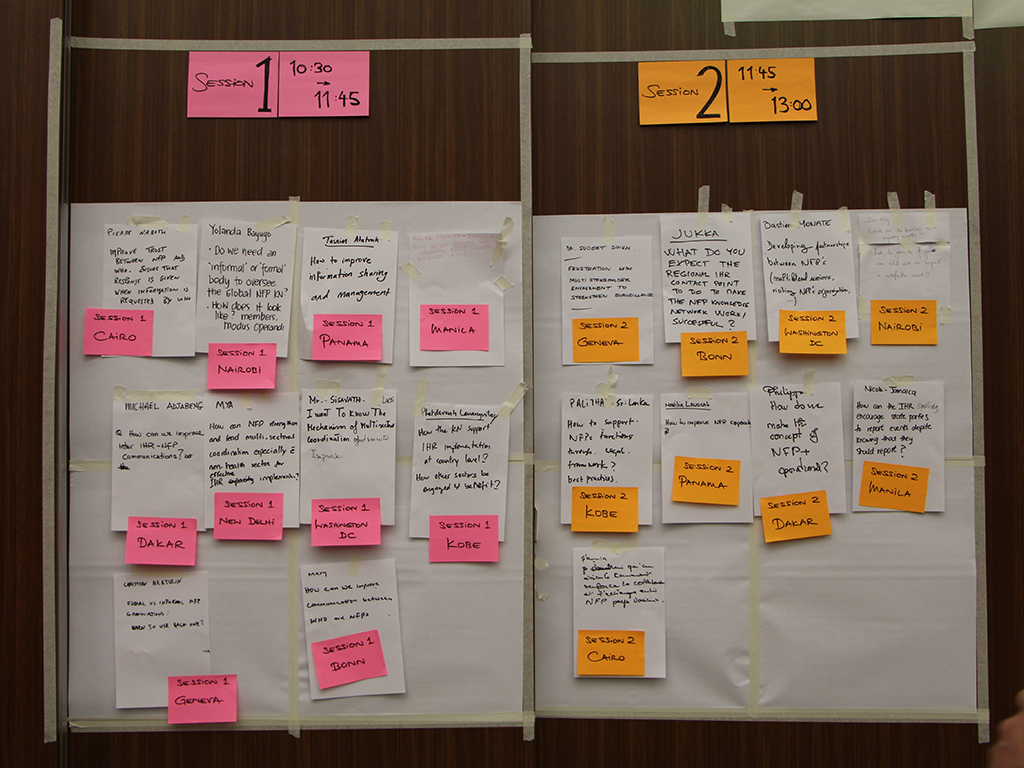 SESSION 1
10:30
→
11:45
SESSION 2
11:45
→
13:00
IMPROVE TRUST
BETWEEN NFP AND
WHO. ENSURE THAT
RESPONSE IS GIVEN
WHEN INFORMATION IS
REQUESTED BY WHO
SESSION 1
CAIRO
Yolanda Bayugo
· Do we need an
'informal' or 'formal'
body to oversee
the Global NFP KN?
· How does it look
like? members.
Modus Operandi
SESSION 1
NAIROBI
How to improve
information sharing
and management
SESSION 1
PANAMA
SESSION 1
MANILA
MICHAEL ADJABENG
Q How can we improve
inter IHR-NFP
communications?
SESSION 1
DAKAR
MYA
How can NFP strengthen
and lead multi-sectoral
coordination especially
non-health sector for
effective
IHR capacity implement?
SESSION 1
NEW DELHI
Mr. SISAVATH.
I want To Know The
Mechanism of Multisector
coordination of
SESSION 1
WASHINGTON
DC
How the KN support
IHR implementation
at country level?
How other sectors be
engaged & benefit?
SESSION 1
KOBE
CHRISTIAN
FORMAL VS INFORMAL NFP
WHEN TO USE EACH ONE?
SESSION 1
GENEVA
Mary
How can we improve
communication between
WHO and NFPs
SESSION 1
BONN
DR. SUJEET SINGH
FRUSTRATION WITH
MULTI STAKEHOLDER
ENGAGEMENT TO
STRENGTHEN SURVEILLANCE
SESSION 2
GENEVA
JUKKA
WHAT DO YOU
EXPECT THE
REGIONAL IHR
CONTACT POINT
TO DO TO MAKE
THE NFP KNOWLEDGE
NETWORK WORK/
SUCCESFUL?
SESSION 2
BONN
Bastien MONATE
Developing partnerships
between NFP's
(multilateral sessions,
visiting NFP's organisation,
...)
SESSION 2
WASHINGTON
DC
SESSION 2
NAIROBI
PALITHA - Sri Lanka
How to support
NFPs functions
through legal
framework?
best practices.
SESSION 2
KOBE
How to improve NFP capacity?
SESSION 2
PANAMA
Philippe
How do we
make the
concept of
NFP+
operational?
SESSION 2
DAKAR
Nicole - Jamaica
How can the IHR
encourage state parties
to report events despite
knowing that they
should report?
SESSION 2
MANILA
NFP pays voisins.
SESSION 2
CAIRO